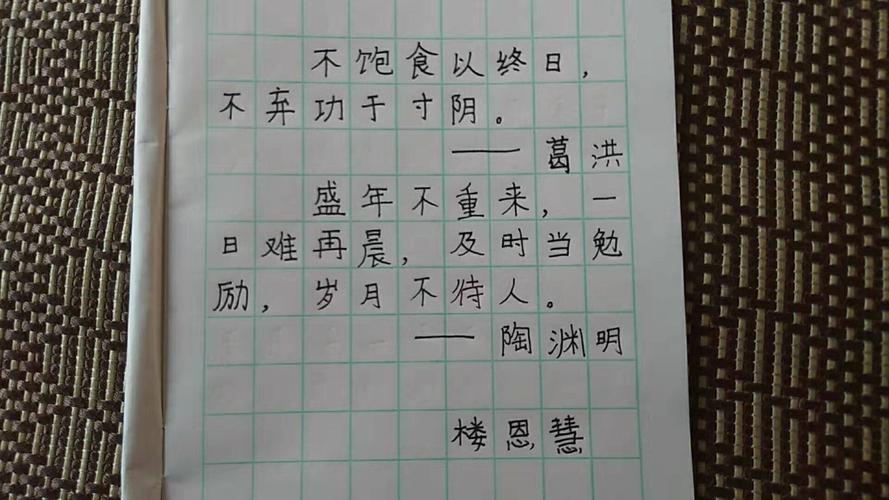 不饱食以终日，
不弃功于寸阴。
——葛洪
盛年不重来，一
日难再晨，及时当勉
励，岁月不待人。
——陶渊明
楼恩慧